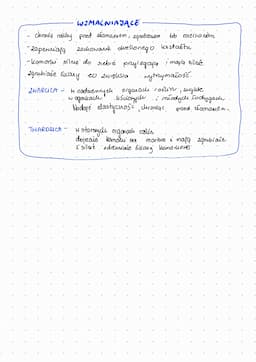 WZMACNIAJĄCE
- chronią rośliny przed złamaniem, zgnieceniem lub rozerwaniem
- zapewniają zachowanie określonego kształtu
- komórki silnie do siebie przylegają i mają silnie
zgrubiałe ściany co zwiększa wytrzymałość
ZWARCICA - w nadziemnych organach roślin, zwykle
w ogonkach liściowych i młodych łodygach
Nadaje elastyczność, chroniąc przed złamaniem.
TWARDZICA - w starszych organach roślin
dojrzałe komórki są martwe i mają zgrubiałe
i silnie zdrewniałe ściany komórkowe